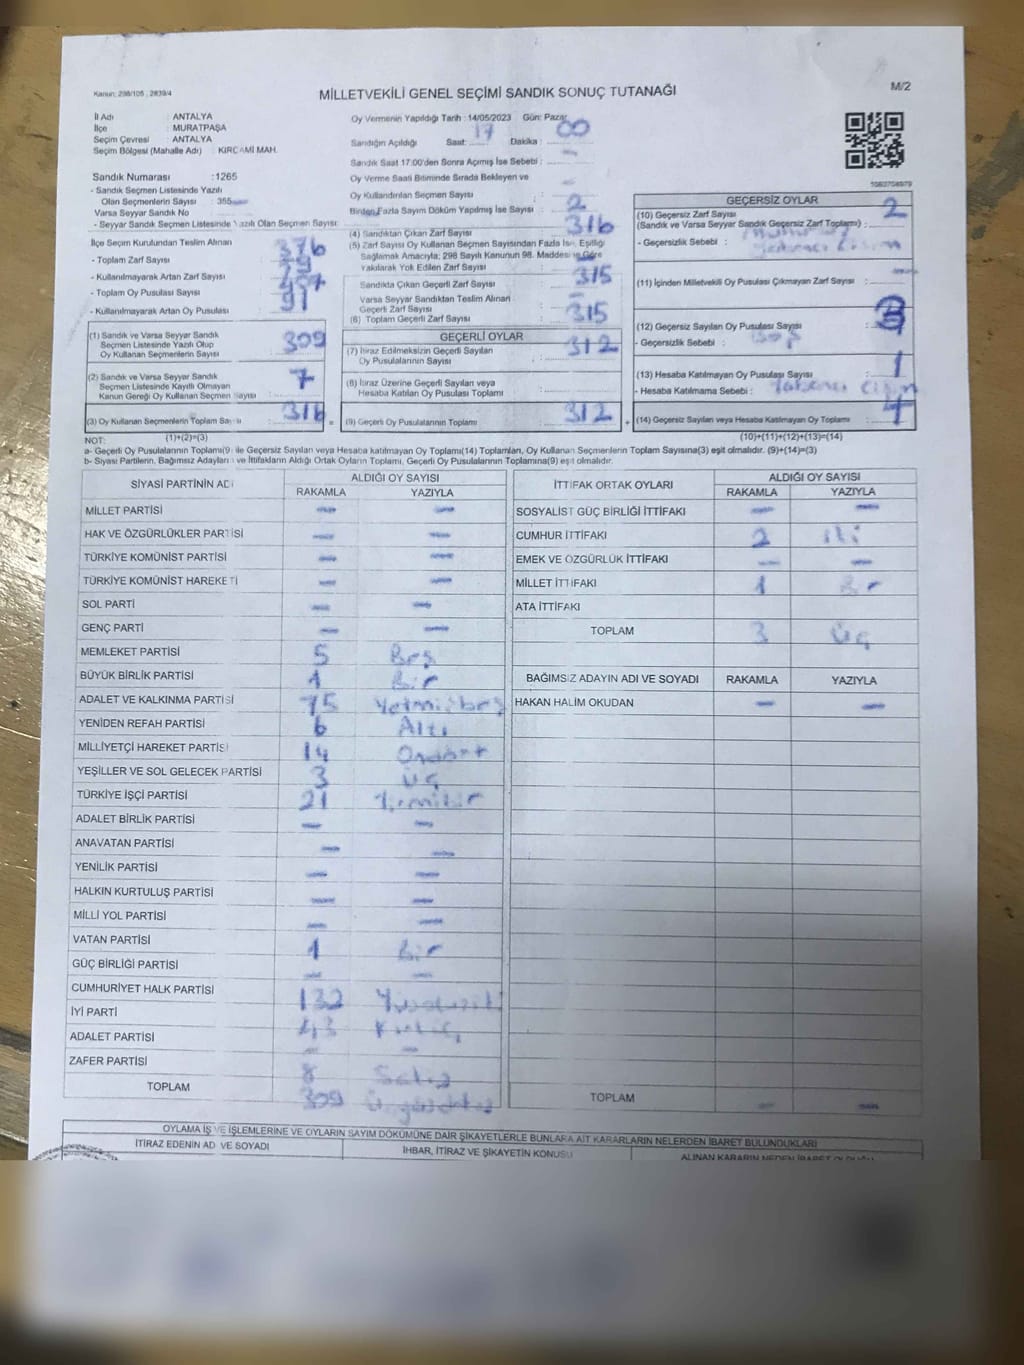 Kanun: 298/105 , 2839/4
MİLLETVEKİLİ GENEL SEÇİMİ SANDIK SONUÇ TUTANAĞI
M/2
İl Adı : ANTALYA
İlçe : MURATPAŞA
Seçim Çevresi : ANTALYA
Seçim Bölgesi (Mahalle Adı) : KIRCAMİ MAH.
Sandık Numarası :1265
- Sandık Seçmen Listesinde Yazılı
Olan Seçmenlerin Sayısı : 355
Varsa Seyyar Sandık No
- Seyyar Sandık Seçmen Listesinde Yazılı Olan Seçmen Sayısı
İlçe Seçim Kurulundan Teslim Alınan
- Toplam Zarf Sayısı 376
- Kullanılmayarak Artan Zarf Sayısı
- Toplam Oy Pusulası Sayısı
- Kullanılmayarak Artan Oy Pusulası 91
(1) Sandık ve Varsa Seyyar Sandık
Seçmen Listesinde Yazılı Olup
Oy Kullanan Seçmenlerin Sayısı 309
(2) Sandık ve Varsa Seyyar Sandık
Seçmen Listesinde Kayıtlı Olmayan
Kanun Gereği Oy Kullanan Seçmen Sayısı 7
(3) Oy Kullanan Seçmenlerin Toplam Sayısı 316
(1)+(2)=(3)
Oy Vermenin Yapıldığı Tarih : 14/05/2023 Gün: Pazar
Sandığın Açıldığı Saat: 17 Dakika : 00
Sandık Saat 17:00'den Sonra Açılmış İse Sebebi : -
Oy Verme Saati Bitiminde Sırada Bekleyen ve
Oy Kullandırılan Seçmen Sayısı : -
Birden Fazla Sayım Döküm Yapılmış İse Sayısı : 2
(4) Sandıktan Çıkan Zarf Sayısı : 316
(5) Zarf Sayısı Oy Kullanan Seçmen Sayısından Fazla İse, Eşitliği
Sağlamak Amacıyla; 298 Sayılı Kanunun 98. Maddesine Göre
Yakılarak Yok Edilen Zarf Sayısı : -
Sandıkta Çıkan Geçerli Zarf Sayısı : 315
Varsa Seyyar Sandıktan Teslim Alınan
Geçerli Zarf Sayısı : -
(6) Toplam Geçerli Zarf Sayısı : 315
GEÇERLİ OYLAR
(7) İtiraz Edilmeksizin Geçerli Sayılan
Oy Pusulalarının Sayısı : 312
(8) İtiraz Üzerine Geçerli Sayılan veya
Hesaba Katılan Oy Pusulası Toplamı :
(9) Geçerli Oy Pusulalarının Toplamı : 312
GEÇERSİZ OYLAR
(10) Geçersiz Zarf Sayısı
(Sandık ve Varsa Seyyar Sandık Geçersiz Zarf Toplamı) : 2
- Geçersizlik Sebebi :
(11) İçinden Milletvekili Oy Pusulası Çıkmayan Zarf Sayısı : -
(12) Geçersiz Sayılan Oy Pusulası Sayısı
- Geçersizlik Sebebi : Boş
(13) Hesaba Katılmayan Oy Pusulası Sayısı : 1
- Hesaba Katılmama Sebebi : Yabancı Cisim
(14) Geçersiz Sayılan veya Hesaba Katılmayan Oy Toplamı : 4
(10)+(11)+(12)+(13)=(14)
NOT:
a- Geçerli Oy Pusulalarının Toplamı(9) ile Geçersiz Sayılan veya Hesaba katılmayan Oy Toplamı(14) Toplamları, Oy Kullanan Seçmenlerin Toplam Sayısına(3) eşit olmalıdır. (9)+(14)=(3)
b- Siyasi Partilerin, Bağımsız Adayların ve İttifakların Aldığı Ortak Oyların Toplamı, Geçerli Oy Pusulalarının Toplamına(9) eşit olmalıdır.
SİYASİ PARTİNİN ADI ALDIĞI OY SAYISI
RAKAMLA YAZIYLA
MİLLET PARTİSİ - -
HAK VE ÖZGÜRLÜKLER PARTİSİ - -
TÜRKİYE KOMÜNİST PARTİSİ - -
TÜRKİYE KOMÜNİST HAREKETİ - -
SOL PARTİ - -
GENÇ PARTİ - -
MEMLEKET PARTİSİ 5 Beş
BÜYÜK BİRLİK PARTİSİ 1 Bir
ADALET VE KALKINMA PARTİSİ 75 Yetmişbeş
YENİDEN REFAH PARTİSİ 6 Altı
MİLLİYETÇİ HAREKET PARTİSİ 14 Ondört
YEŞİLLER VE SOL GELECEK PARTİSİ 3 Üç
TÜRKİYE İŞÇİ PARTİSİ 21 Yirmibir
ADALET BİRLİK PARTİSİ - -
ANAVATAN PARTİSİ - -
YENİLİK PARTİSİ - -
HALKIN KURTULUŞ PARTİSİ - -
MİLLİ YOL PARTİSİ - -
VATAN PARTİSİ 1 Bir
GÜÇ BİRLİĞİ PARTİSİ - -
CUMHURİYET HALK PARTİSİ 132
İYİ PARTİ 43 Kırküç
ADALET PARTİSİ - -
ZAFER PARTİSİ 8 Sekiz
TOPLAM 309 Üçyüzdokuz
İTTİFAK ORTAK OYLARI ALDIĞI OY SAYISI
RAKAMLA YAZIYLA
SOSYALİST GÜÇ BİRLİĞİ İTTİFAKI - -
CUMHUR İTTİFAKI 2 İki
EMEK VE ÖZGÜRLÜK İTTİFAKI - -
MİLLET İTTİFAKI 1 Bir
ATA İTTİFAKI
TOPLAM 3 Üç
BAĞIMSIZ ADAYIN ADI VE SOYADI RAKAMLA YAZIYLA
HAKAN HALİM OKUDAN - -
TOPLAM - -
OYLAMA İŞ VE İŞLEMLERİNE VE OYLARIN SAYIM DÖKÜMÜNE DAİR ŞİKAYETLERLE BUNLARA AİT KARARLARIN NELERDEN İBARET BULUNDUKLARI
İTİRAZ EDENİN ADI VE SOYADI İHBAR, İTİRAZ VE ŞİKAYETİN KONUSU ALINAN KARARIN NEDEN İBARET OLDUĞU